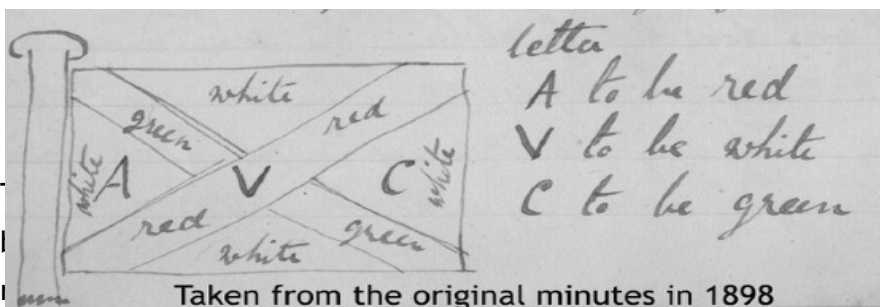 white
green
red
white
A
V
C
white
red
white
green
letter
A to be red
V to be white
C to be green
Taken from the original minutes in 1898